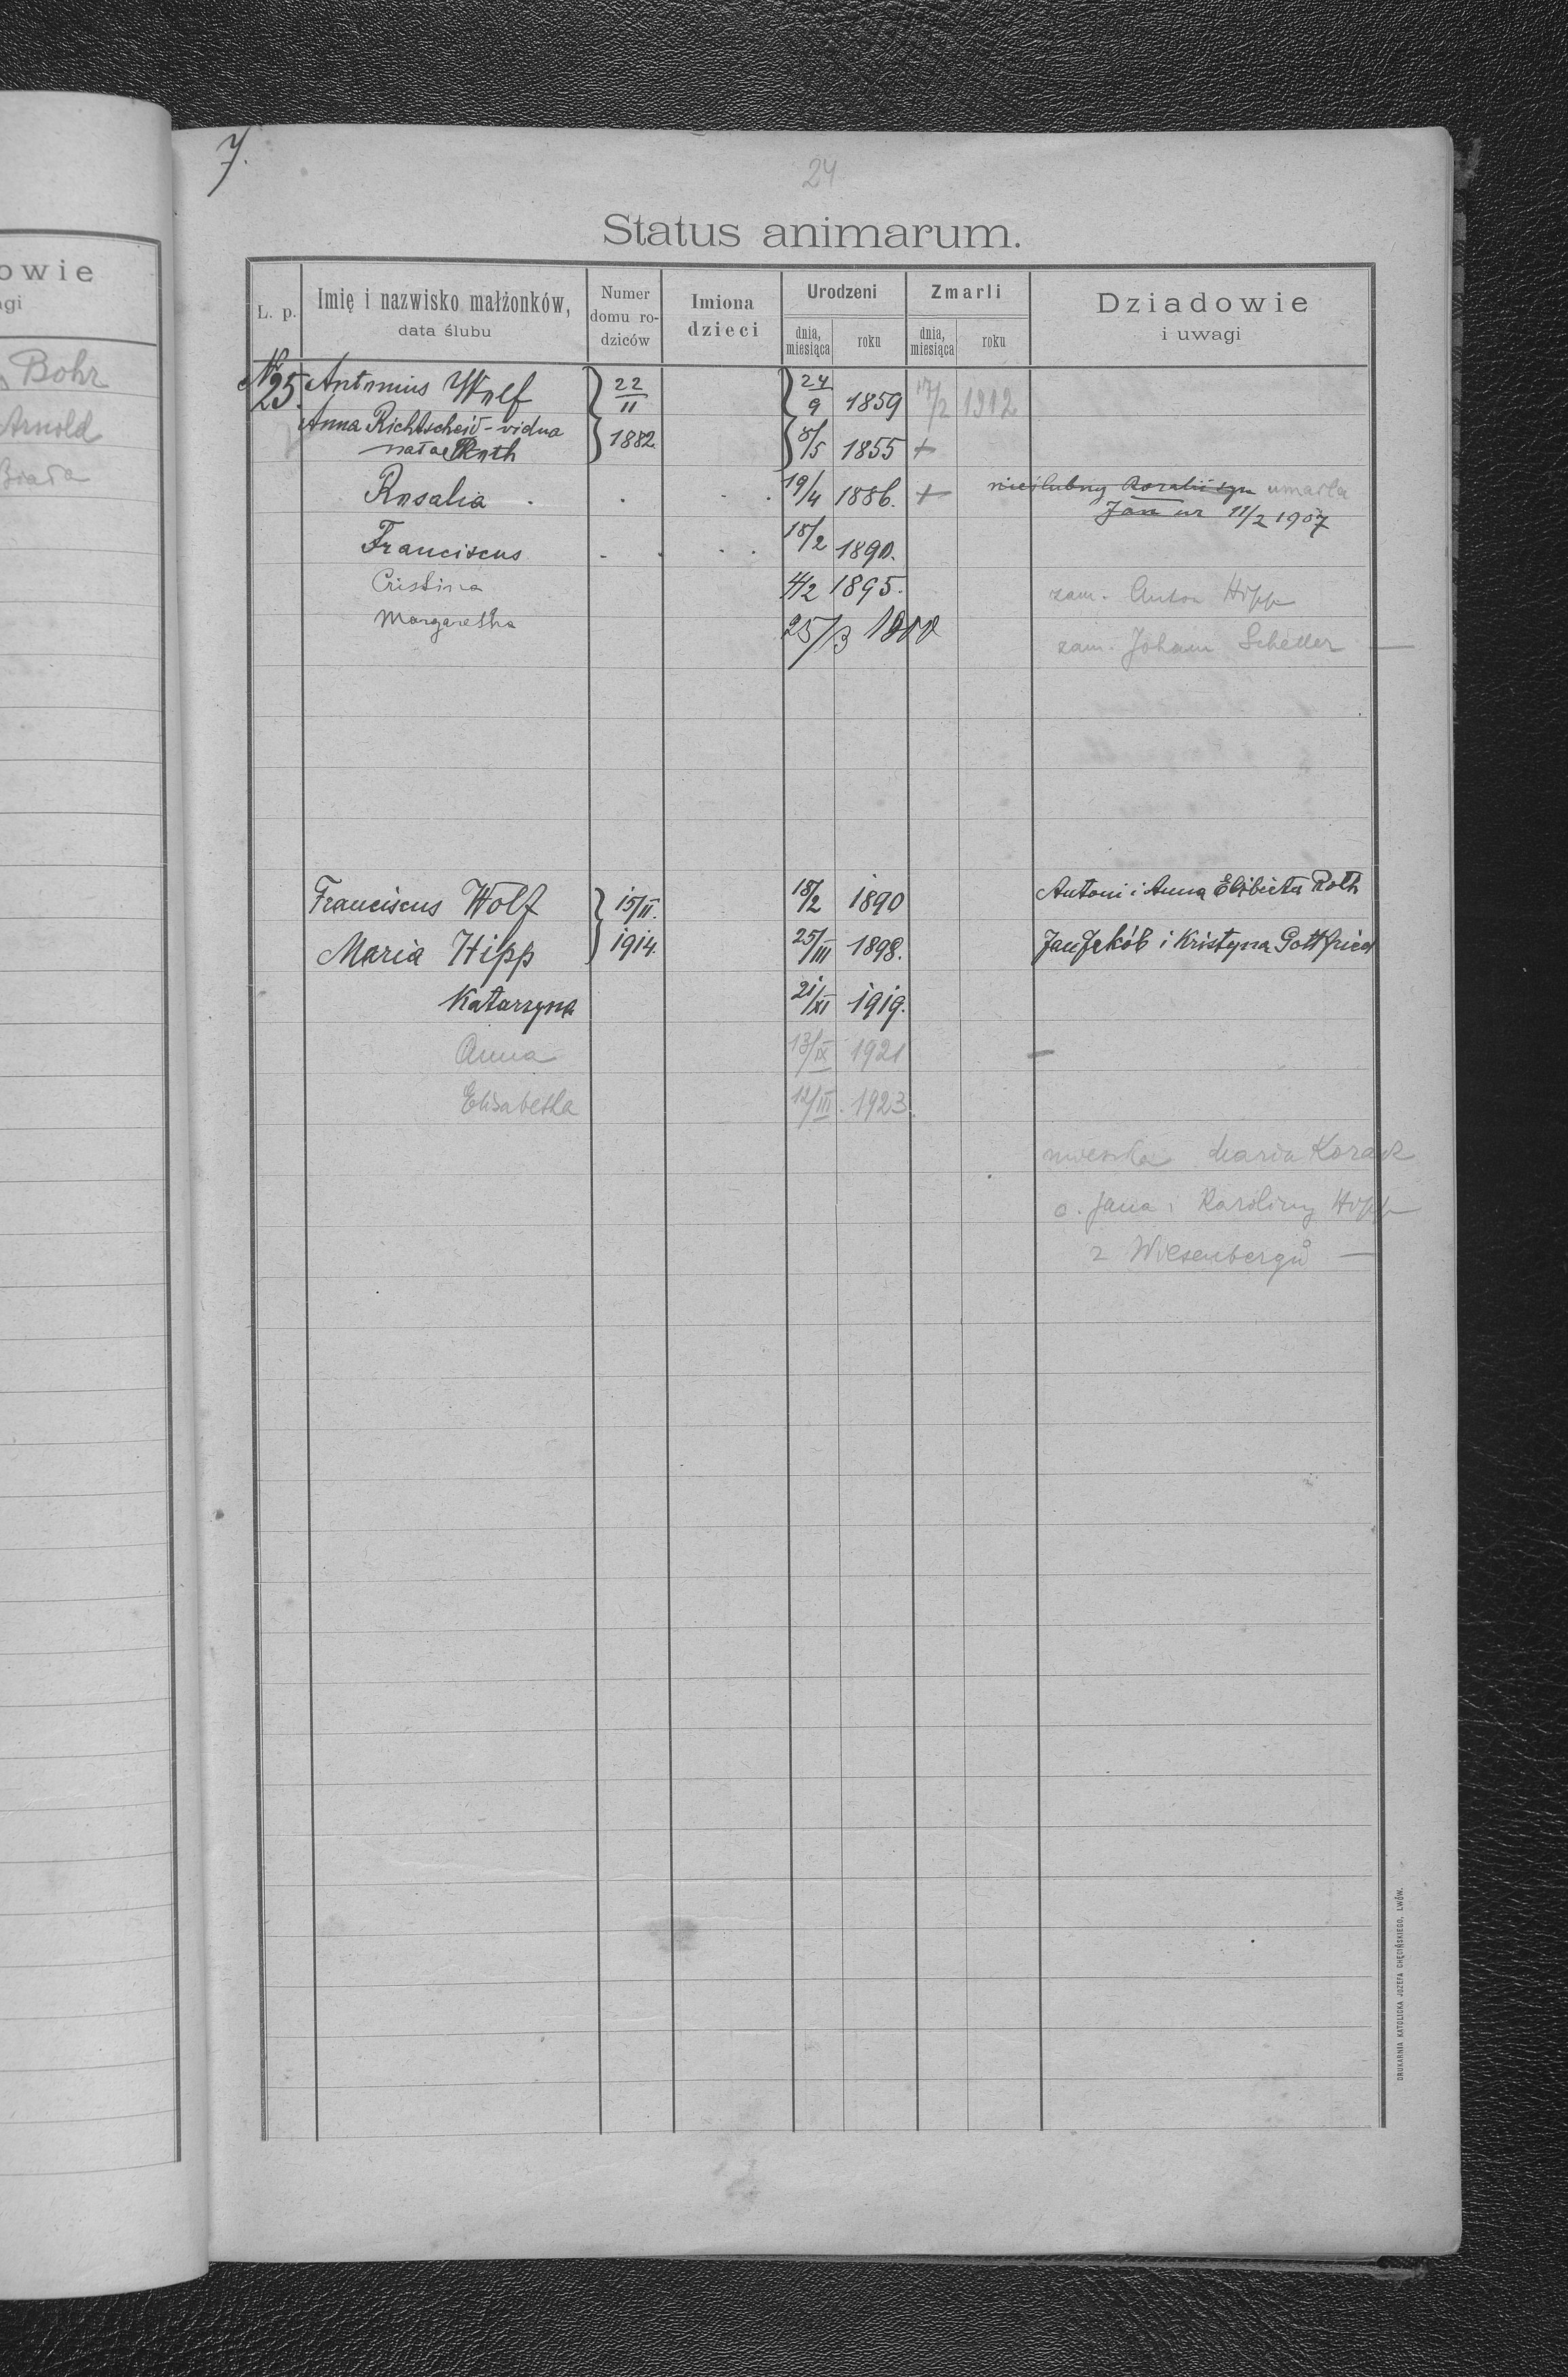 owie
agi
Bohr
Arnold
7.
24
Status animarum.
L. p.
Imię i nazwisko małżonków,
data ślubu
Numer
domu ro-
dziców
Imiona
dzieci
Urodzeni
dnia,
miesiąca
roku
Zmarli
dnia,
miesiąca
roku
Dziadowie
i uwagi
№ 25. Antonius Wolf 22/II 24/9 1859 17/2 1912
Anna Richtscheid - vidua 1882. 8/5 1855 +
natae Roth
Rosalia 19/4 1886. + nieślubny Rozalii syn umarła
Jan ur 11/2 1907
Franciscus 18/2 1890.
Cristina 4/2 1895. zam. Anton Hipp
Margaretha 25/3 1900 zam. Johann Scheller —
Franciscus Wolf 15/II. 18/2 1890 Antoni i Anna Elżbieta Roth
Maria Hipp 1914. 25/III 1898. Jan Jakób i Kristyna Gottfried
Katarzyna 21/XI 1919.
Anna 13/IX 1921 –
Elisabetha 12/III. 1923.
mieszka Maria
c. Jana i Karoliny Hipp
z Wiesenbergu —
DRUKARNIA KATOLICKA JÓZEFA CHĘCIŃSKIEGO, LWÓW.